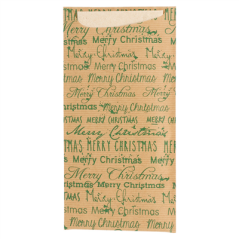 Merry Christmas
Merry Christmas
Merry Christmas
Merry Christmas
Merry Christmas Merry
Christmas Merry Christmas
MERRY CHRISTMAS MERRY
Merry Christmas
MERRY CHRISTMAS
Merry Christmas
Merry Christmas
Christmas Merry Christmas
Merry Christmas
Merry Christmas
Merry Christmas
Merry Christmas